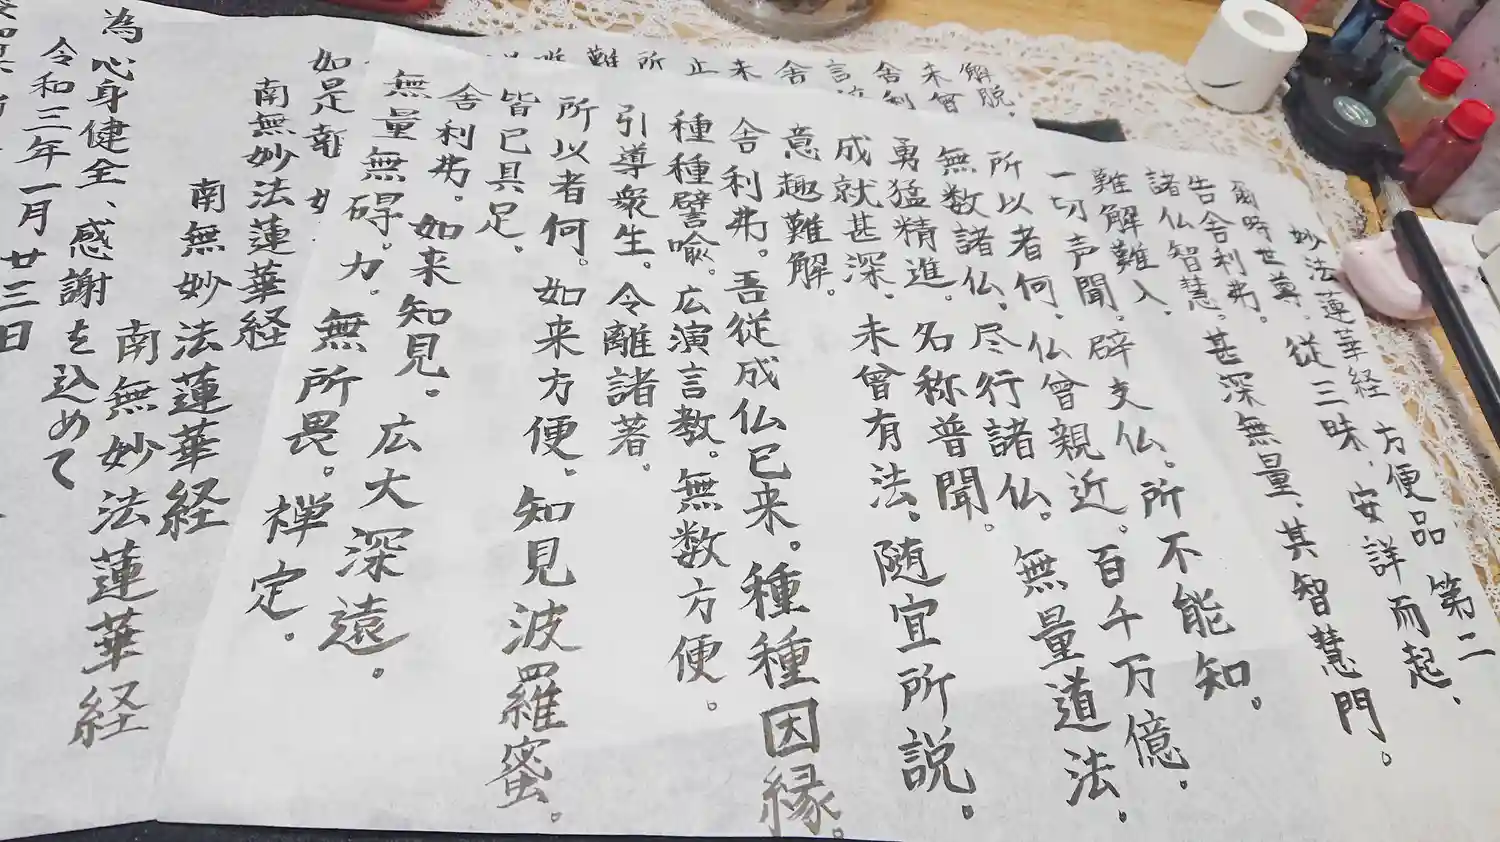 妙法蓮華経 方便品 第二
爾時世尊。従三昧、安詳而起、
告舎利弗。
諸仏智慧。甚深無量、其智慧門。
難解難入、
一切声聞。辟支仏。所不能知。
所以者何、仏曾親近。百千万億。
無数諸仏、尽行諸仏。無量道法。
勇猛精進。名称普聞。
成就甚深、未曾有法。随宜所説。
意趣難解。
舎利弗。吾従成仏已来。種種因縁。
種種譬喩。広演言教。無数方便。
引導衆生。令離諸著。
所以者何。如来方便。知見波羅蜜。
皆已具足。
舎利弗。如来知見。広大深遠。
無量無碍。力。無所畏。禅定。
解脱。
未曾
舎利
言
舎
未
止
所
難
如是
南無妙法蓮華経
南無妙法蓮華経
南無妙法蓮華経
為心身健全、感謝を込めて
令和三年一月廿三日